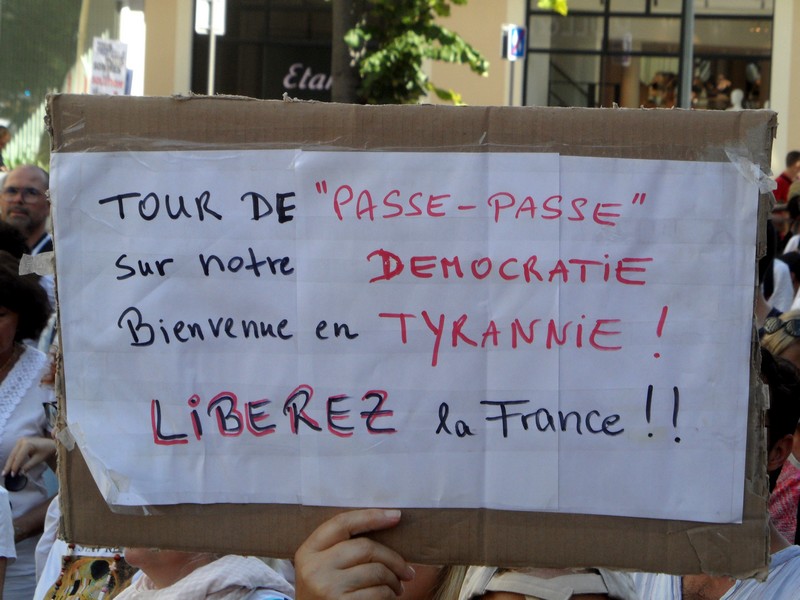 Etam
TOUR DE "PASSE-PASSE"
sur notre DEMOCRATIE
Bienvenue en TYRANNIE !
LiBEREZ la France !!